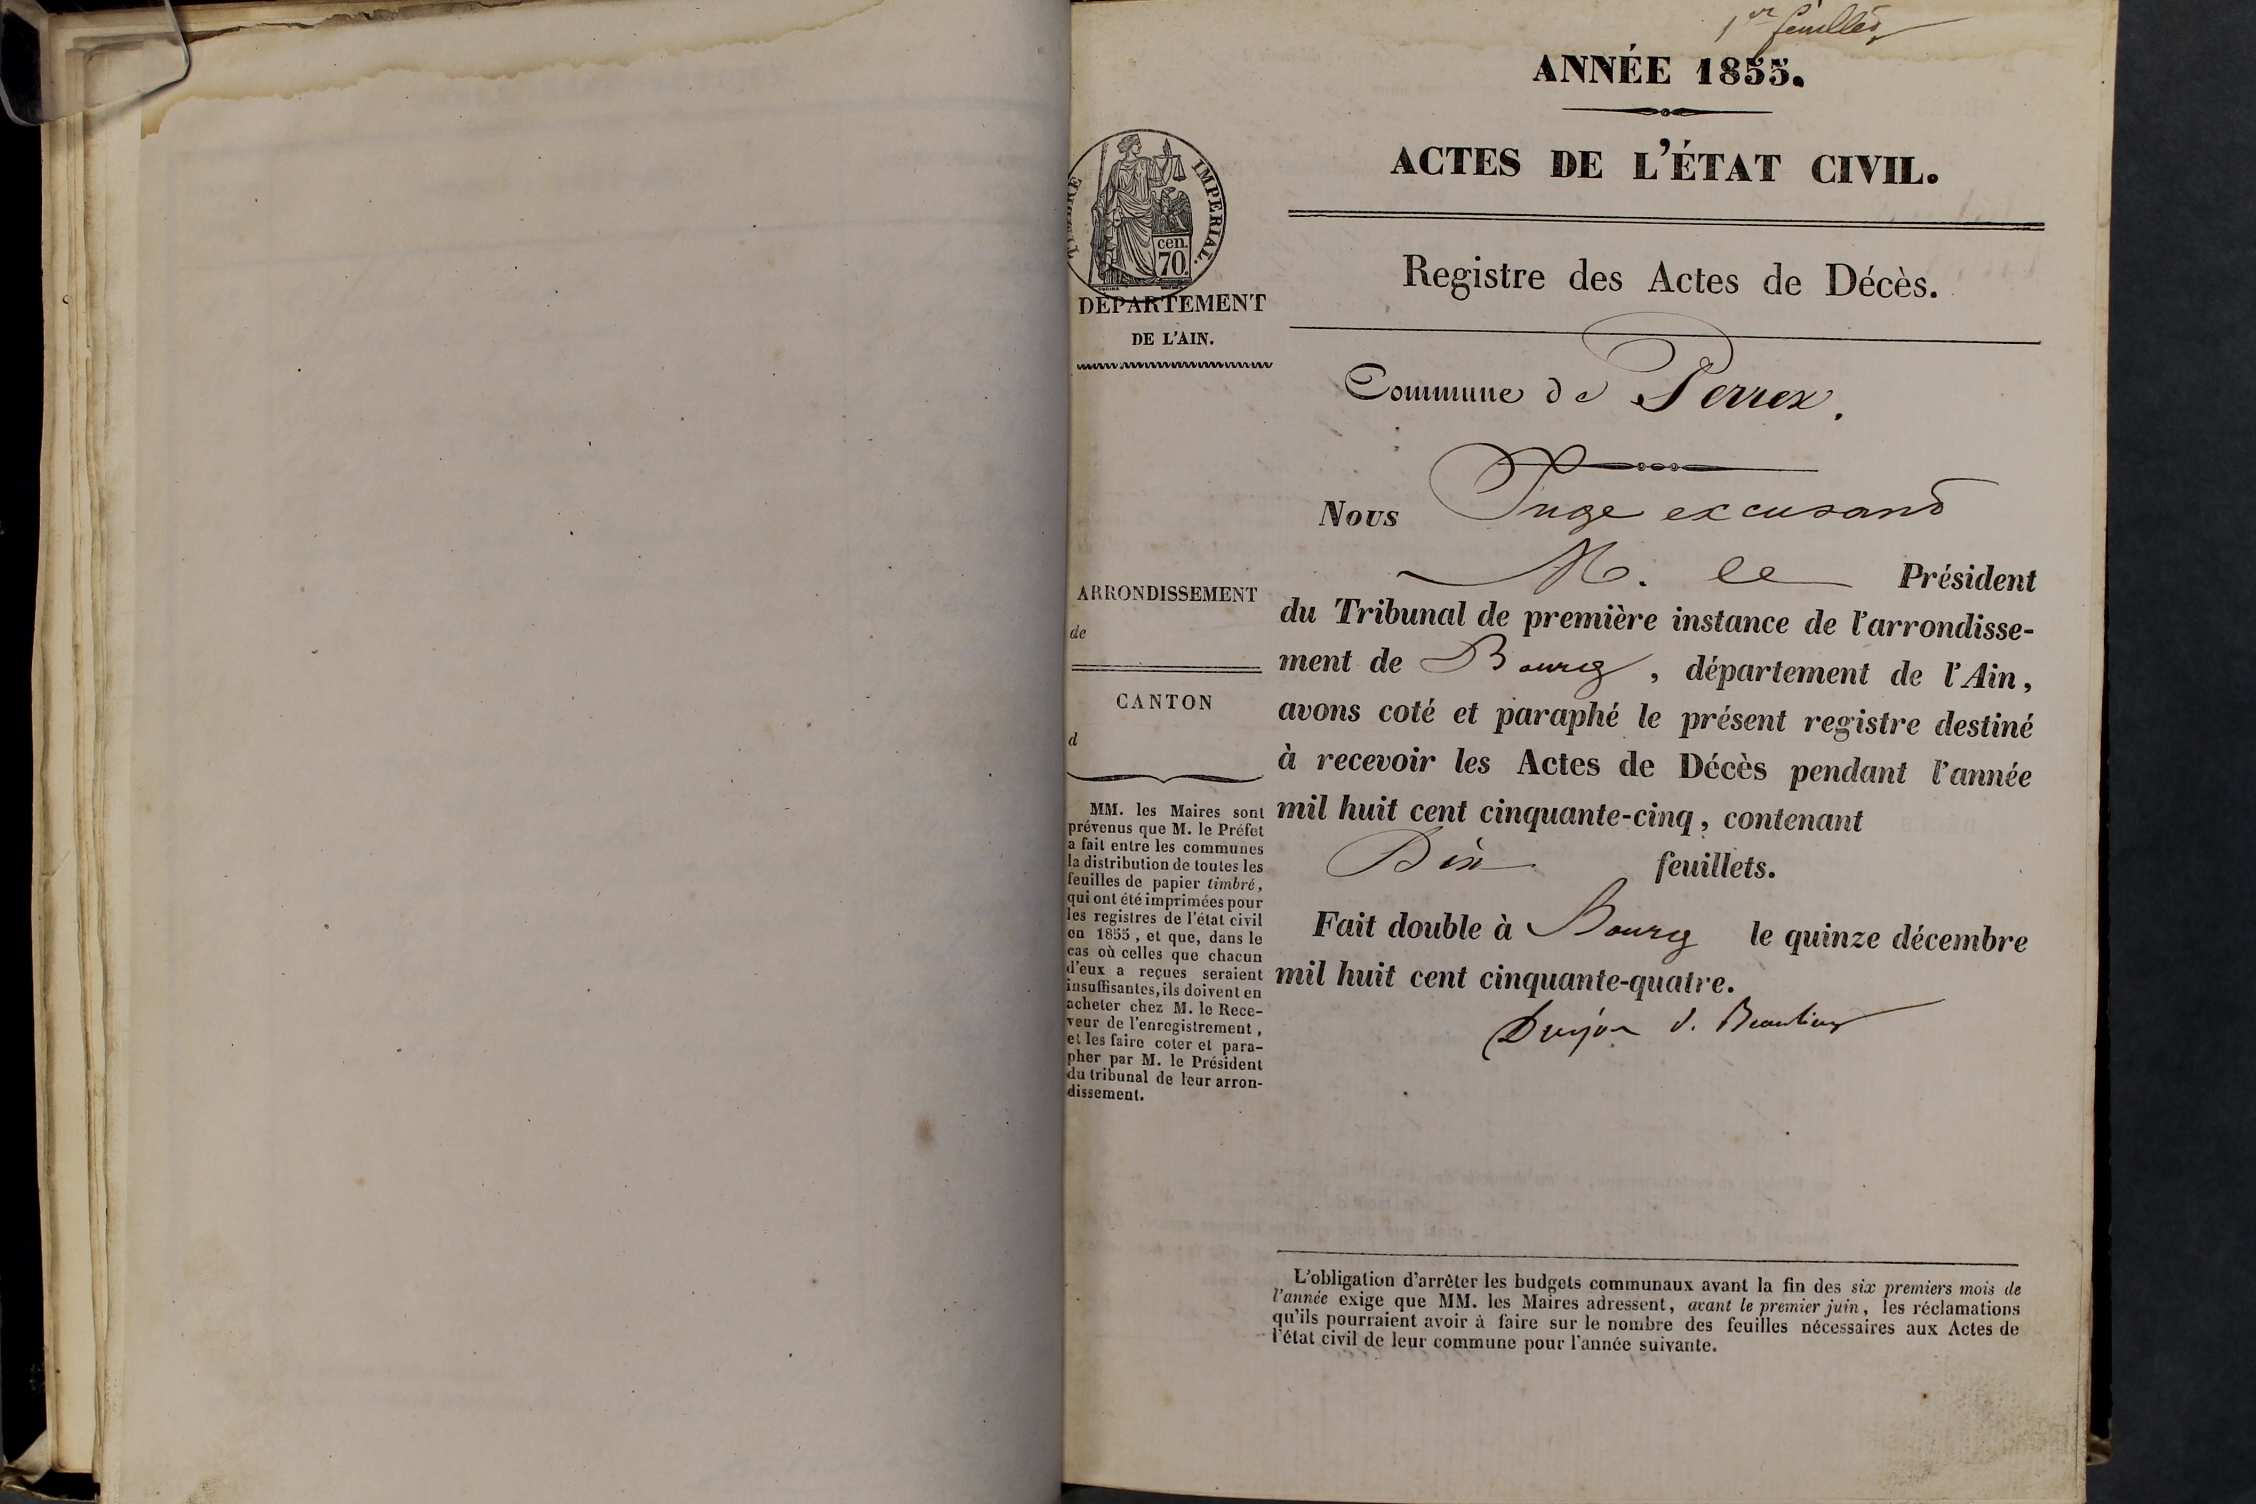 1er feuillet
ANNÉE 1855.
ACTES DE L'ÉTAT CIVIL.
Registre des Actes de Décès.
TIMBRE IMPERIAL.
cen.
70.
DÉPARTEMENT
DE L'AIN.
Commune de Perrex.
Nous Juge excusant
M. le Président
du Tribunal de première instance de l'arrondisse-
ment de Bourg, département de l'Ain,
avons coté et paraphé le présent registre destiné
à recevoir les Actes de Décès pendant l'année
mil huit cent cinquante-cinq, contenant
Dix feuillets.
Fait double à Bourg le quinze décembre
mil huit cent cinquante-quatre.
Dujon d. Beaulieu
ARRONDISSEMENT
de
CANTON
d
MM. les Maires sont
prévenus que M. le Préfet
a fait entre les communes
la distribution de toutes les
feuilles de papier timbré,
qui ont été imprimées pour
les registres de l'état civil
en 1855, et que, dans le
cas où celles que chacun
d'eux a reçues seraient
insuffisantes, ils doivent en
acheter chez M. le Rece-
veur de l'enregistrement,
et les faire coter et para-
pher par M. le Président
du tribunal de leur arron-
dissement.
L'obligation d'arrêter les budgets communaux avant la fin des six premiers mois de
l'année exige que MM. les Maires adressent, avant le premier juin, les réclamations
qu'ils pourraient avoir à faire sur le nombre des feuilles nécessaires aux Actes de
l'état civil de leur commune pour l'année suivante.